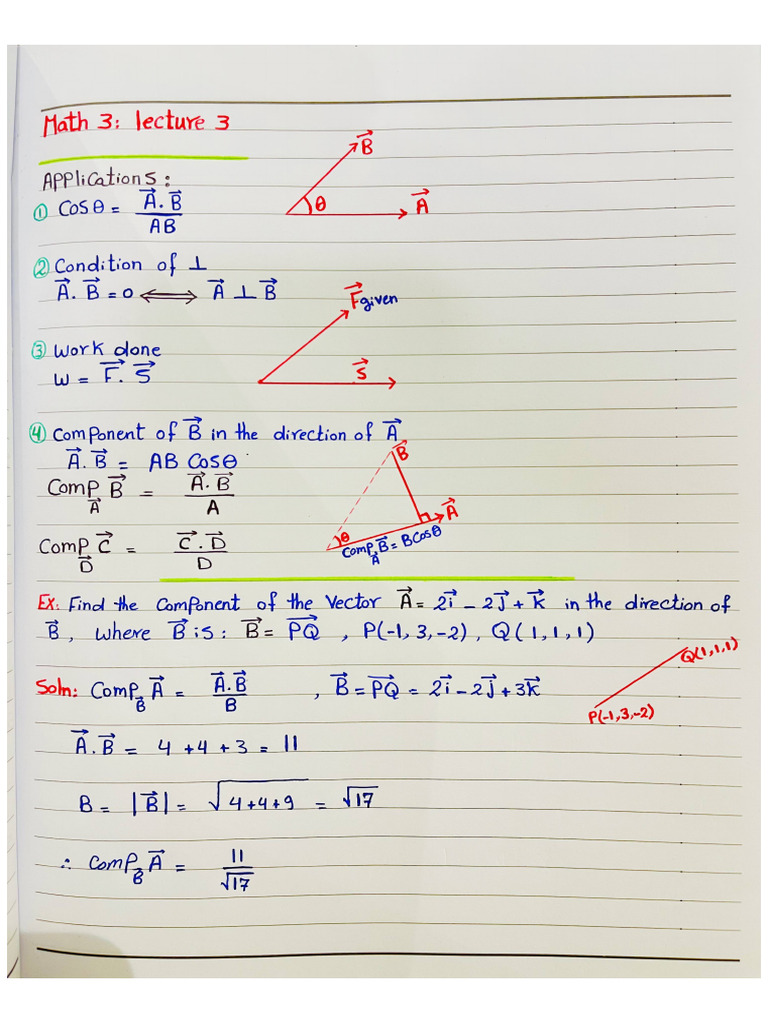 Math 3: lecture 3
Applications:
① Cosθ = A⃗.B⃗ / AB
B⃗
θ
A⃗
② Condition of ⊥
A⃗. B⃗ = 0 ⟺ A⃗ ⊥ B⃗
F⃗given
S⃗
③ Work done
W = F⃗. S⃗
④ Component of B⃗ in the direction of A⃗
A⃗. B⃗ = AB Cosθ
Comp_A⃗ B⃗ = A⃗.B⃗ / A
B⃗
θ
A⃗
Comp_A⃗ B⃗ = BCosθ
Comp_D⃗ C⃗ = C⃗.D⃗ / D
Ex: Find the Component of the Vector A⃗ = 2i⃗ - 2j⃗ + k⃗ in the direction of
B⃗, where B⃗ is: B⃗ = PQ⃗, P(-1, 3, -2), Q(1, 1, 1)
Soln: Comp_B⃗ A⃗ = A⃗.B⃗ / B , B⃗ = PQ⃗ = 2i⃗ - 2j⃗ + 3k⃗
Q(1,1,1)
P(-1,3,-2)
A⃗.B⃗ = 4 + 4 + 3 = 11
B = |B⃗| = √4+4+9 = √17
∴ Comp_B⃗ A⃗ = 11 / √17